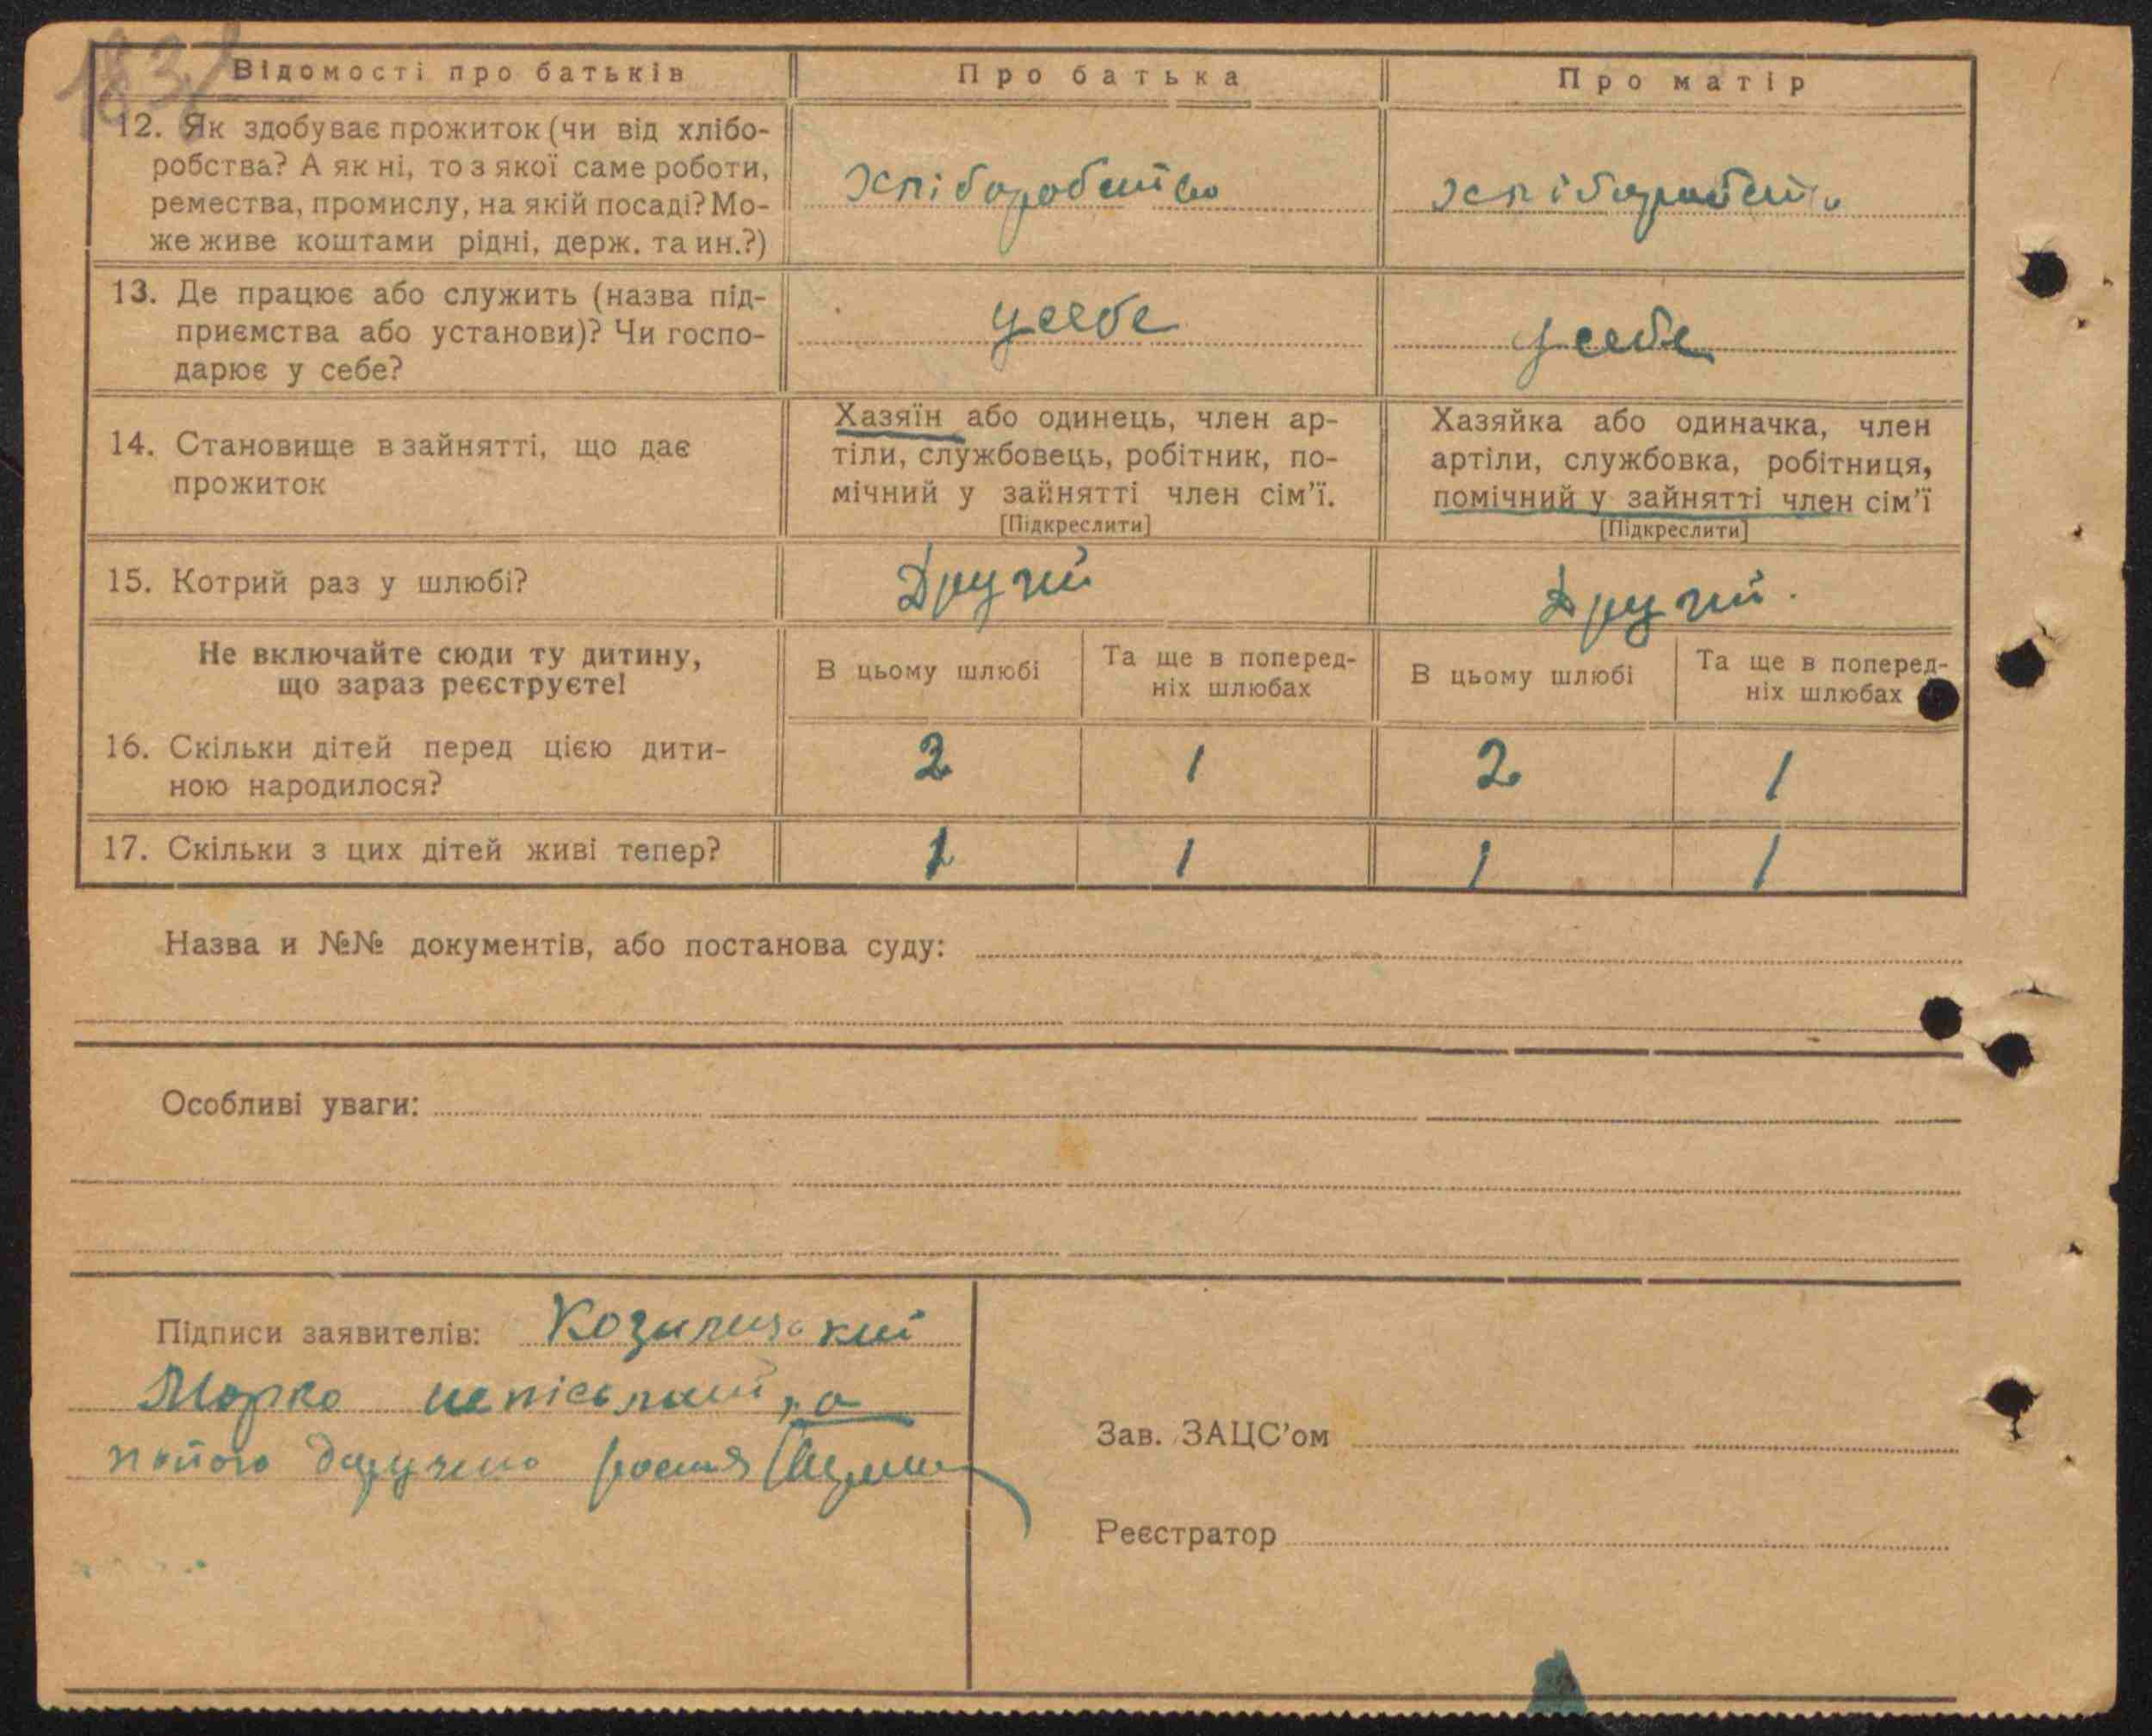 Відомості про батьків
Про батька
Про матір
12. Як здобуває прожиток (чи від хлібо-
робства? А як ні, то з якої саме роботи,
ремества, промислу, на якій посаді? Мо-
же живе коштами рідні, держ. та ин.?)
хліборобство
хліборобство
13. Де працює або служить (назва під-
приємства або установи)? Чи госпо-
дарює у себе?
у себе
у себе
14. Становище в зайнятті, що дає
прожиток
Хазяїн або одинець, член ар-
тіли, службовець, робітник, по-
мічний у зайнятті член сім'ї.
[Підкреслити]
Хазяйка або одиначка, член
артіли, службовка, робітниця,
помічний у зайнятті член сім'ї
[Підкреслити]
15. Котрий раз у шлюбі?
Другий
Другий.
Не включайте сюди ту дитину,
що зараз реєструєте!
В цьому шлюбі
Та ще в поперед-
ніх шлюбах
В цьому шлюбі
Та ще в поперед-
ніх шлюбах
16. Скільки дітей перед цією дити-
ною народилося?
2
1
2
1
17. Скільки з цих дітей живі тепер?
1
1
1
1
Назва и №№ документів, або постанова суду:
Особливі уваги:
Підписи заявителів:
Марко
Зав. ЗАЦС'ом
Реєстратор